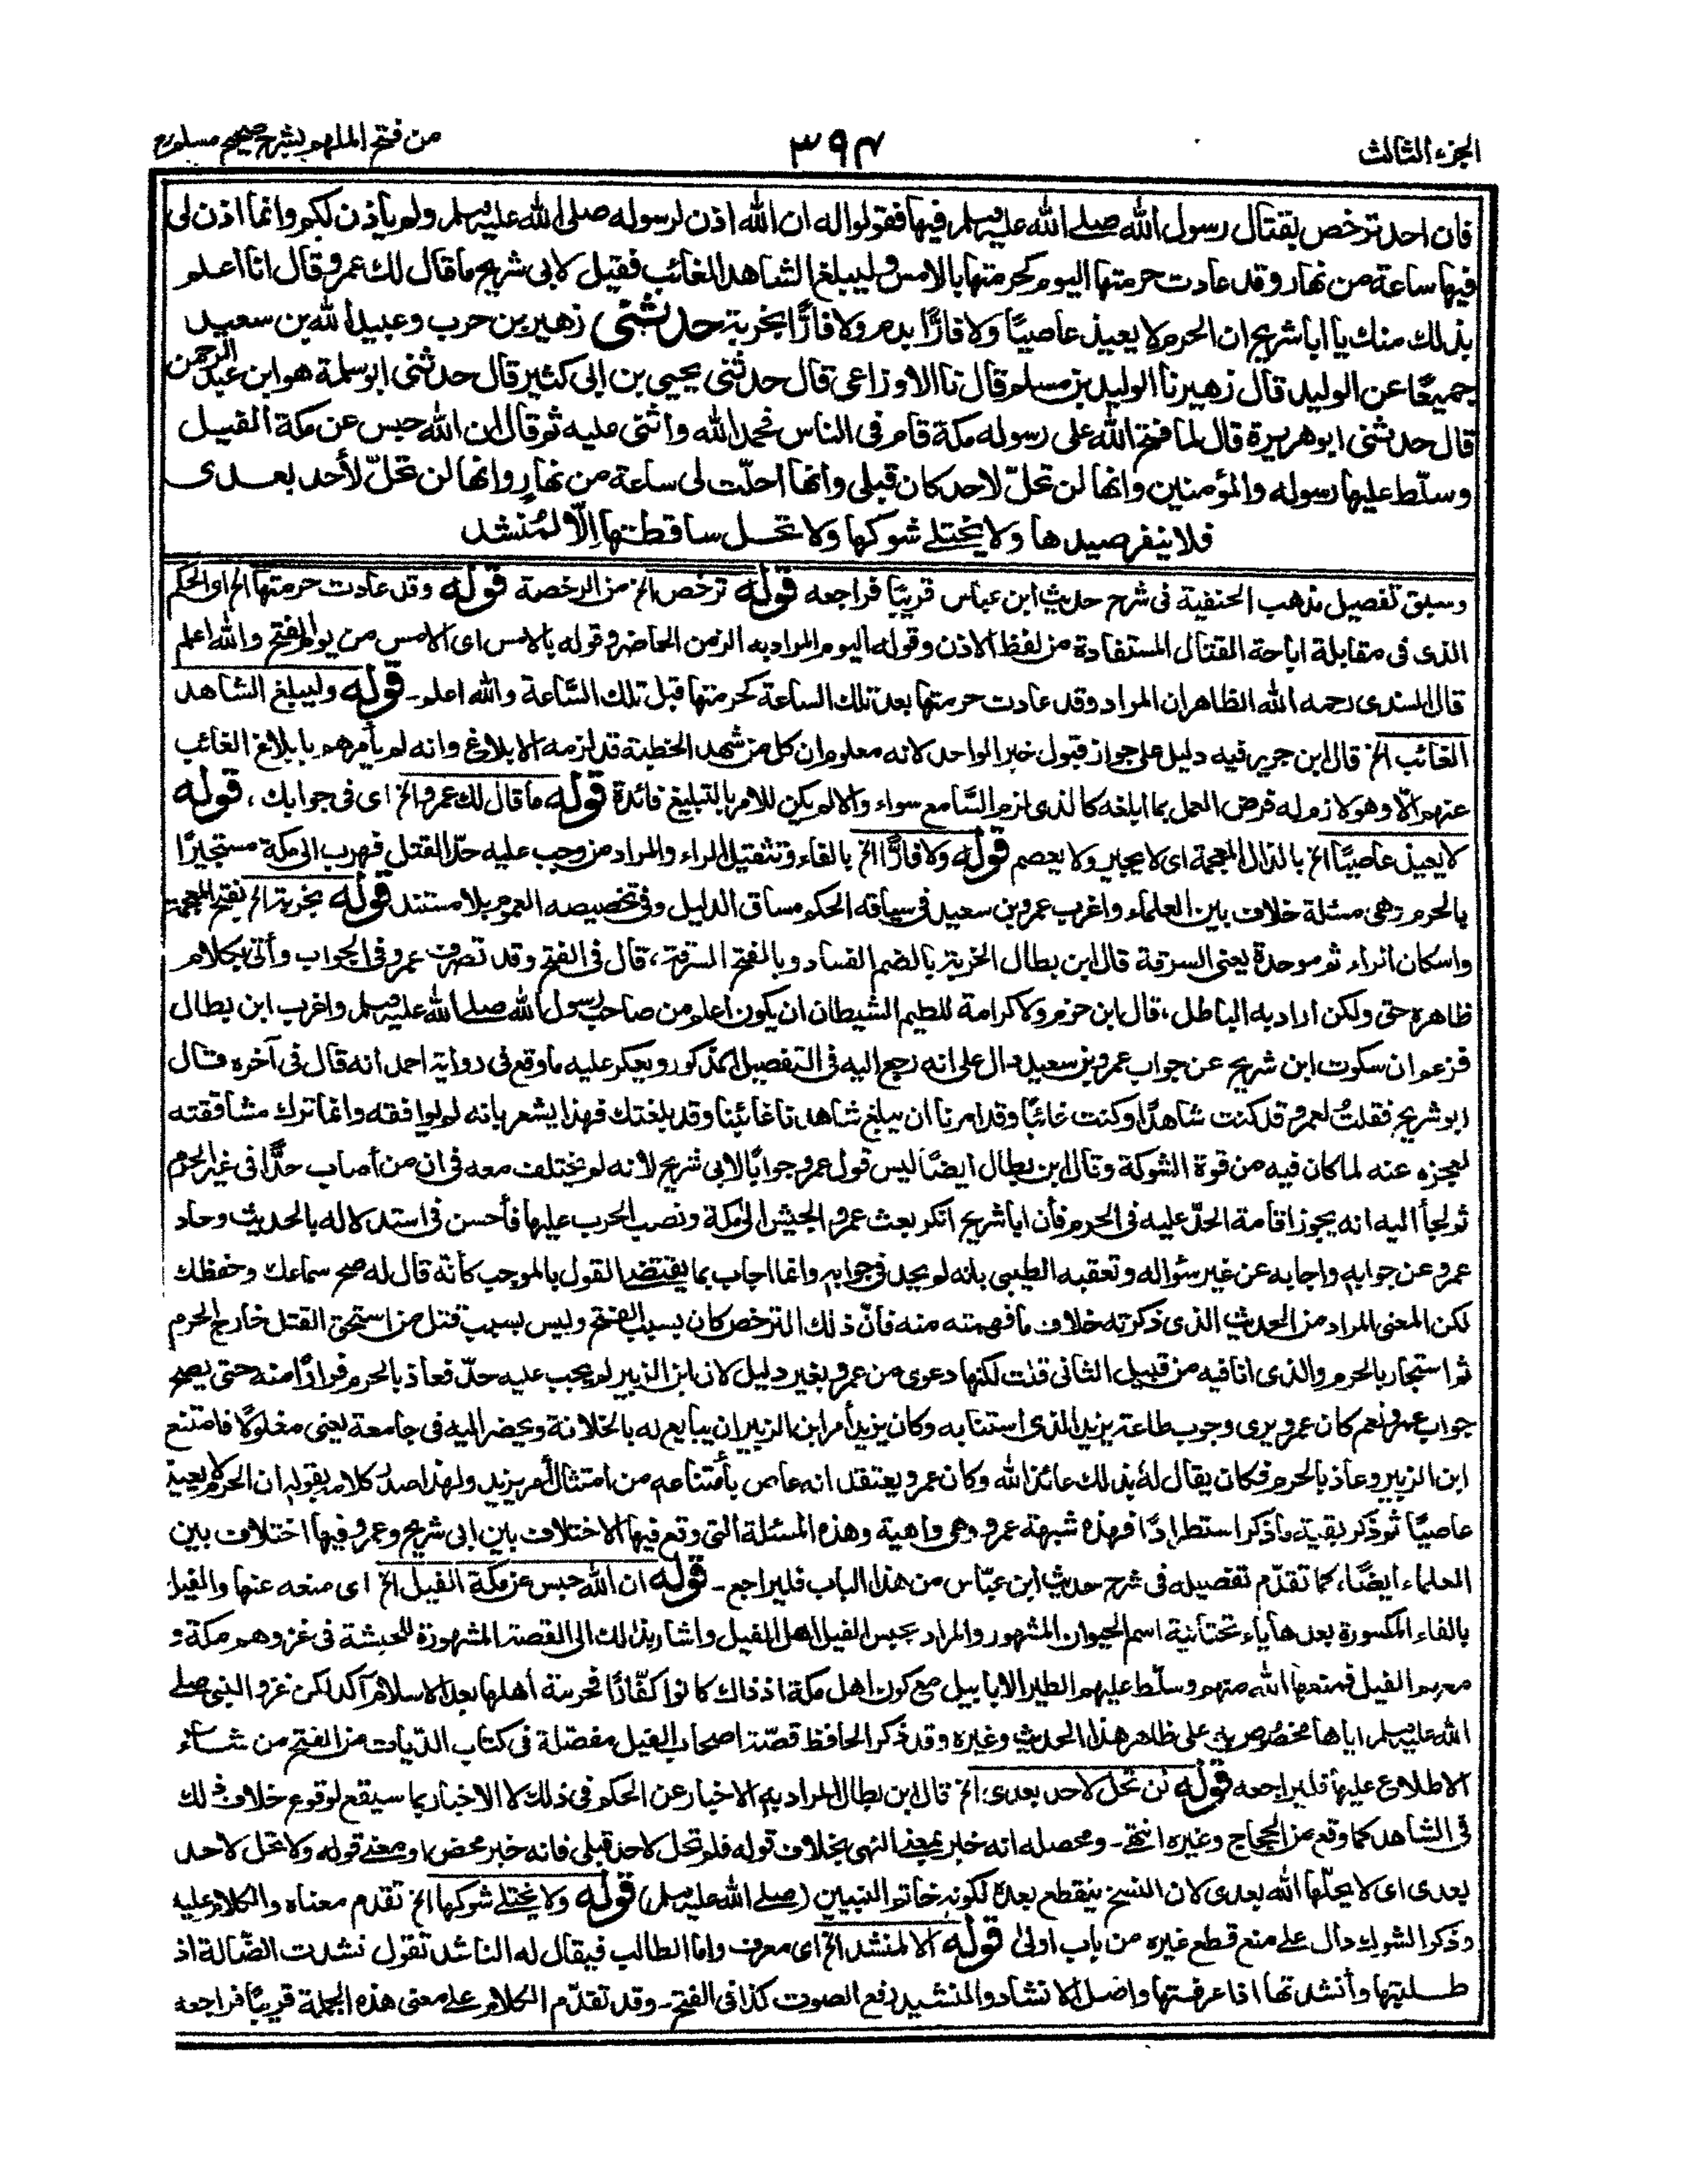 الجزء الثالث
٣٩٤
من فتح الملهم بشرح صحيح مسلم
فان احد ترخص بقتال رسول الله صلى الله عليه وسلم فيها فقولوا له ان الله اذن لرسوله صلى الله عليه وسلم ولم يأذن لكم وانما اذن لى
فيها ساعة من نهار وقد عادت حرمتها اليوم كحرمتها بالامس وليبلغ الشاهد الغائب فقيل لابى شريح ما قال لك عمرو قال انا اعلم
بذلك منك يا ابا شريح ان الحرم لا يعيذ عاصيًا ولا فارًّا بدم ولا فارًّا بخربة حدثنى زهير بن حرب وعبيد الله بن سعيد
جميعًا عن الوليد قال زهير نا الوليد بن مسلم قال نا الاوزاعى قال حدثنى يحيى بن ابى كثير قال حدثنى ابو سلمة هو ابن عبد الرحمن
قال حدثنى ابو هريرة قال لما فتح الله على رسوله مكة قام فى الناس فحمد الله واثنى عليه ثم قال ان الله حبس عن مكة الفيل
وسلّط عليها رسوله والمؤمنين وانها لن تحلّ لاحد كان قبلى وانها احلّت لى ساعة من نهارٍ وانها لن تحلّ لأحد بعدى
فلا ينفر صيدها ولا يختلى شوكها ولا تحل ساقطتها اِلّا لمُنشد
وسبق تفصيل مذهب الحنفية فى شرح حديث ابن عباس قريبًا فراجعه قوله ترخص الخ من الرخصة قوله وقد عادت حرمتها الخ اى الحكم
الذى فى مقابلة اباحة القتال المستفادة من لفظ الاذن وقوله اليوم المراد به الزمن الحاضر وقوله بالامس اى الامس من يوم الفتح والله اعلم
قال السندى رحمه الله الظاهر ان المراد وقد عادت حرمتها بعد تلك الساعة كحرمتها قبل تلك السّاعة والله اعلم۔ قوله وليبلغ الشاهد
الغائب الخ قال ابن جرير فيه دليل على جواز قبول خبر الواحد لانه معلوم ان كل من شهد الخطبة قد لزمه الابلاغ وانه لم يأمرهم بابلاغ الغائب
عنهم الّا وهو لازم له فرض العمل بما ابلغه كالذى لزم السّامع سواء والا لم يكن للامر بالتبليغ فائدة قوله ما قال لك عمرو الخ اى فى جوابك، قوله
لا يعيذ عاصيًا الخ بالذال المعجمة اى لا يجير ولا يعصم قوله ولا فارًّا الخ بالفاء وتثقيل الراء والمراد من وجب عليه حدّ القتل فهرب الى مكة مستجيرًا
بالحرم وهى مسئلة خلاف بين العلماء واغرب عمرو بن سعيد فى سياقه الحكم مساق الدليل وفى تخصيصه العموم بلا مستند قوله بخربة الخ بفتح المعجمة
واسكان الراء ثم موحدة يعنى السرقة قال ابن بطال الخربة بالضم الفساد وبالفتح السرقة، قال فى الفتح وقد تصرف عمرو فى الجواب وأتى بكلام
ظاهره حق ولكن اراد به الباطل، قال ابن حزم ولا كرامة للطيم الشيطان ان يكون أعلم من صاحب رسول الله صلى الله عليه وسلم واغرب ابن بطال
فزعم ان سكوت ابن شريح عن جواب عمرو بن سعيد دال على انه رجع اليه فى التفصيل المذكور ويعكر عليه ما وقع فى رواية احمد انه قال فى آخره قال
ابو شريح فقلتُ لعمرو قد كنت شاهدًا وكنت غائبًا وقد امرنا ان يبلغ شاهدنا غائبنا وقد بلغتك فهذا يشعر بانه لم يوافقه وانما ترك مشاققته
لعجزه عنه لما كان فيه من قوة الشوكة وقال ابن بطال ايضًا ليس قول عمرو جوابًا لابى شريح لانه لم يختلف معه فى ان من أصاب حدًّا فى غير الحرم
ثم لجأ اليه انه يجوز اقامة الحدّ عليه فى الحرم فأن ابا شريح انكر بعث عمرو الجيش الى مكة ونصب الحرب عليها فأحسن فى استدلاله بالحديث وحاد
عمرو عن جوابه واجابه عن غير سؤاله وتعقبه الطيبى بانه لم يحد فى جوابه وانما اجاب بما يقتضى القول بالموجب كأنه قال له صح سماعك وحفظك
لكن المعنى المراد من الحديث الذى ذكرته خلاف ما فهمته منه فأنّ ذلك الترخص كان بسبب الفتح وليس بسبب قتل من استحق القتل خارج الحرم
ثم استجار بالحرم والذى انا فيه من قبيل الثانى قلت لكنها دعوى من عمرو بغير دليل لان ابن الزبير لم يجب عليه حدّ فعاذ بالحرم فرارًا منه حتى يصح
جواب عمرو نعم كان عمرو يرى وجوب طاعة يزيد الذى استنابه وكان يزيد أمر ابن الزبير ان يبايع له بالخلافة ويحضر اليه فى جامعة يعنى مغلولًا فامتنع
ابن الزبير وعاذ بالحرم فكان يقال لهٗ بذلك عائذ الله وكان عمرو يعتقد انه عاص بأمتناعه من امتثال أمر يزيد ولهذا صدر كلامه بقوله ان الحرم لا يعيذ
عاصيًا ثم ذكر بقية ما ذكر استطرادًا فهذه شبهة عمرو وهى واهية وهذه المسئلة التى وقع فيها الاختلاف بين ابى شريح وعمرو فيها اختلاف بين
العلماء ايضًا، كما تقدّم تفصيله فى شرح حديث ابن عبّاس من هذا الباب فليراجع۔ قوله ان الله حبس عن مكة الفيل الخ اى منعه عنها والفيل
بالفاء المكسورة بعدها ياء تحتانية اسم الحيوان المشهور والمراد بحبس الفيل اهل الفيل واشار بذلك الى القصة المشهورة للحبشة فى غزوهم مكة و
معهم الفيل فمنعها الله منهم وسلّط عليهم الطير الابابيل مع كون اهل مكة اذ ذاك كانوا كفّارًا فحرمة أهلها بعد الاسلام آكد لكن غزو النبى صلى
الله عليه وسلم اياها مخصوص به على ظاهر هذا الحديث وغيره وقد ذكر الحافظ قصّة اصحاب الفيل مفصلة فى كتاب الدّيات من الفتح من شاء
الاطلاع عليها فليراجعه قوله لن تحل لاحد بعدى الخ قال ابن بطال المراد به الاخبار عن الحكم فى ذلك لا الاخبار بما سيقع لوقوع خلاف ذلك
فى الشاهد كما وقع من الحجاج وغيره انتهى۔ ومحصله انه خبر بمعنى النهى بخلاف قوله فلم تحل لاحد قبلى فانه خبر محض او معنى قوله ولا تحل لاحد
بعدى اى لا يحلّها الله بعدى لان النسخ ينقطع بعده لكونه خاتم النبيين (صلى الله عليه وسلم) قوله ولا يختلى شوكها الخ تقدم معناه والكلام عليه
وذكر الشوك دال على منع قطع غيره من باب اولى قوله الا لمنشد الخ اى معرف واما الطالب فيقال له الناشد تقول نشدت الضّالة اذا
طلبتها وأنشدتها اذا عرفتها واصل الانشاد والمنشيد رفع الصوت كذا فى الفتح۔ وقد تقدّم الكلام على معنى هذه الجملة قريبًا فراجعه